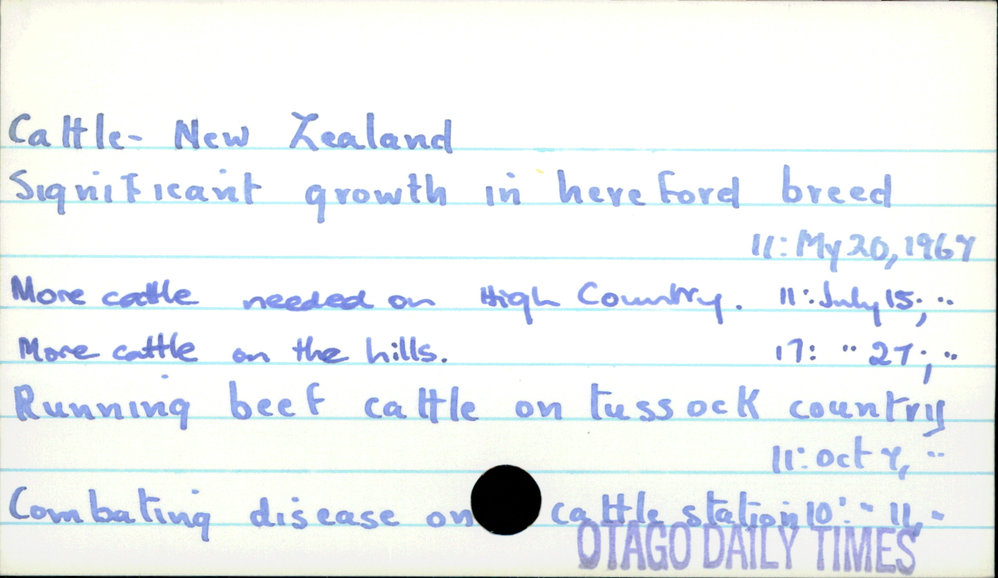 Cattle- New Zealand
Significant growth in hereford breed
11: My 20, 1967
More cattle needed on High Country. 11: July 15; "
More cattle on the hills. 17: " 27; "
Running beef cattle on tussock country
11: Oct 7, "
Combating disease on cattle station 10: " 11, "
OTAGO DAILY TIMES